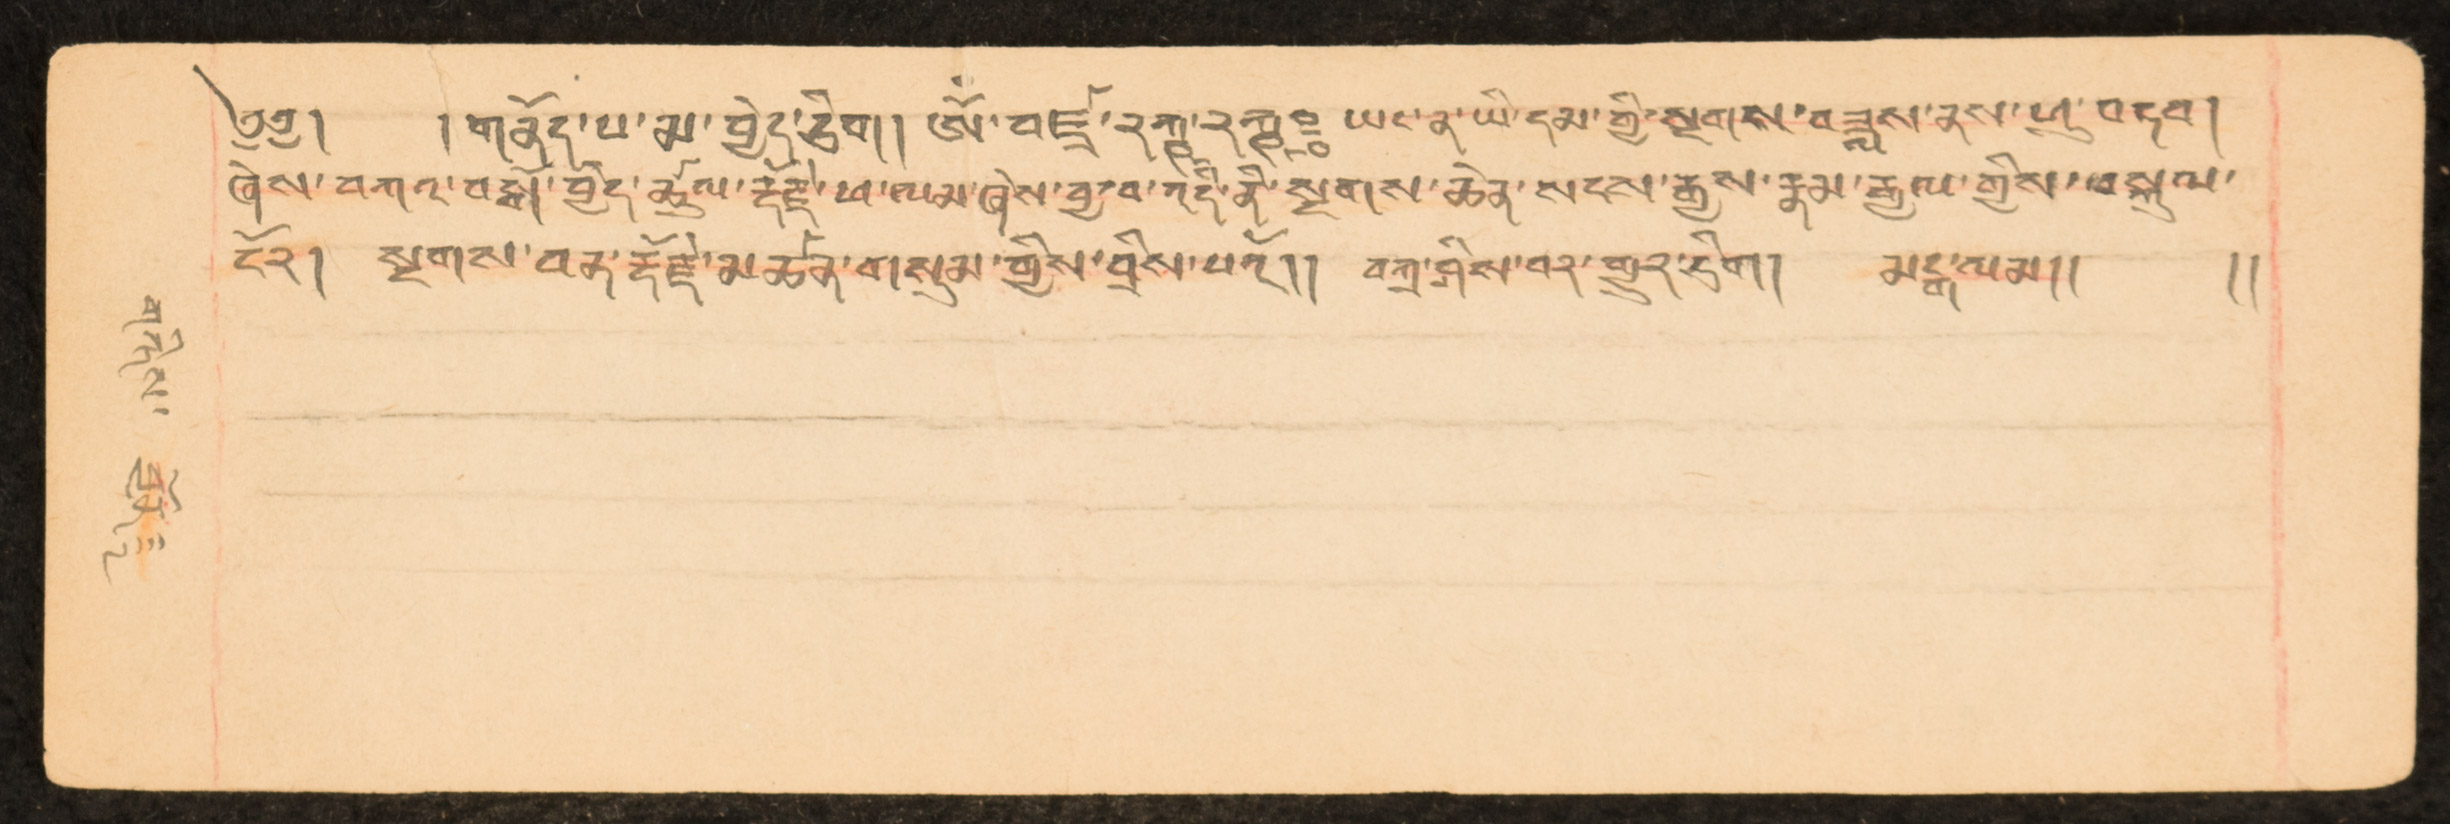 ༄༅། །གནོད་པ་མ་བྱེད་ཅིག། ཨོཾ་བཛྲ་རཀྵ་རཀྵ་ ཡང་ན་ཡི་དམ་གྱི་སྔགས་བཟླས་ནས་ཕུ་བདབ།
ཞེས་བཀའ་བསྒོ་བྱེད་ཚུལ་རྡོ་རྗེ་ཕ་ལམ་ཞེས་བྱ་བ་འདི་ནི་སྔགས་ཆེན་སངས་རྒྱས་རྣམ་རྒྱལ་གྱིས་བསྐུལ་
ངོར། སྔགས་བན་རྡོ་རྗེ་མཚན་གསུམ་གྱིས་བྲིས་པའོ།། བཀྲ་ཤིས་པར་གྱུར་ཅིག། མངྒ་ལམ།། །།
གཉིས་